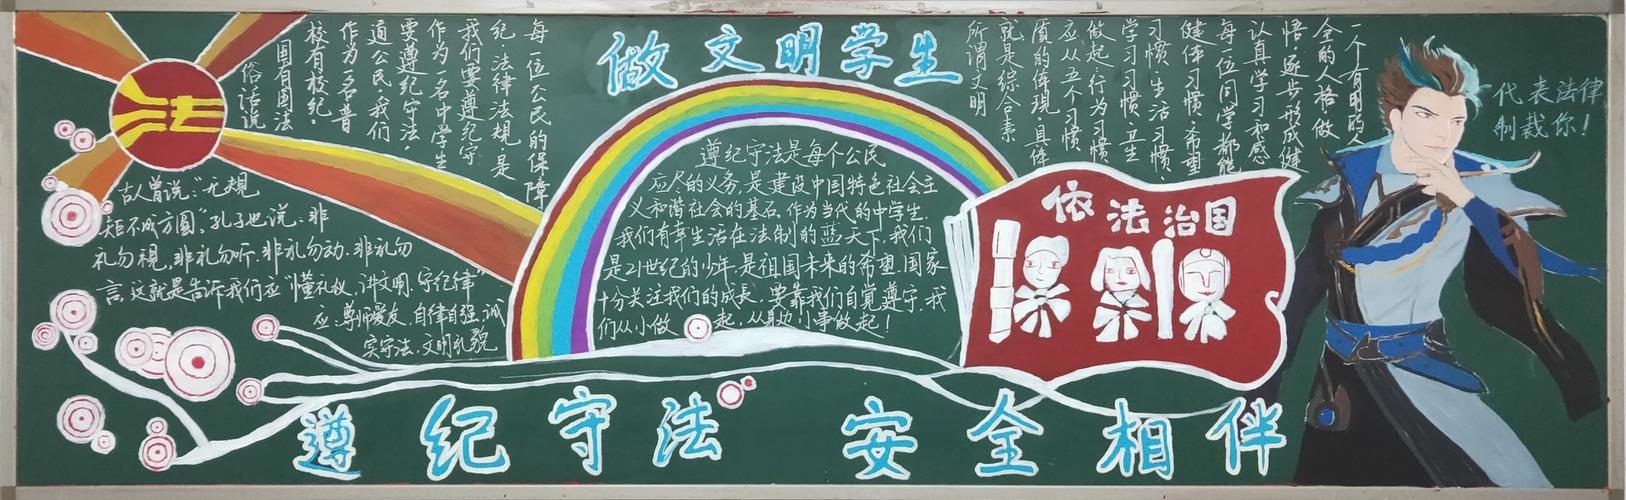 做文明学生
法
俗话说
国有国法
校有校纪。
作为一名普
通公民，我们
要遵纪守法。
作为一名中学生
我们要遵纪守
纪。法律法规是
每一位公民的保障
古人曾说：“无规
矩不成方圆”，孔子也说：非
礼勿视，非礼勿听，非礼勿动，非礼勿
言，这就是告诉我们应“懂礼仪，讲文明，守纪律”
应：尊师爱友，自律自强，诚
实守法，文明礼貌
遵纪守法是每个公民
应尽的义务，是建设中国特色社会主
义和谐社会的基石，作为当代的中学生，
我们有幸生活在法制的蓝天下，我们
是21世纪的少年，是祖国未来的希望，国家
十分关注我们的成长，要靠我们自觉遵守，我
们从小做起，从身边小事做起！
一个有明的人
全的人格做
悟，逐步形成健
认真学习和感
每一位同学都能
健体习惯，希望
习惯、生活习惯、
学习习惯、卫生
做起：行为习惯、
应从五个习惯
质的体现，具体
就是综合素
所谓文明
依法治国
代表法律
制裁你！
遵纪守法 安全相伴